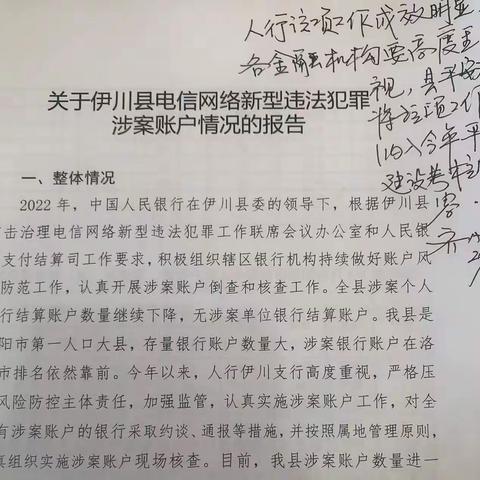 人行该项工作成效明显
各金融机构要高度重
视,县平安
将该项工作
纳入今年平
建设考核
关于伊川县电信网络新型违法犯罪
涉案账户情况的报告
一、整体情况
2022年，中国人民银行在伊川县委的领导下，根据伊川县
击治理电信网络新型违法犯罪工作联席会议办公室和人民银
支付结算司工作要求，积极组织辖区银行机构持续做好账户风
防范工作，认真开展涉案账户倒查和核查工作。全县涉案个人
行结算账户数量继续下降，无涉案单位银行结算账户。我县是
阳市第一人口大县，存量银行账户数量大，涉案银行账户在洛
市排名依然靠前。今年以来，人行伊川支行高度重视，严格压
风险防控主体责任，加强监管，认真实施涉案账户工作，对全
有涉案账户的银行采取约谈、通报等措施，并按照属地管理原则，
真组织实施涉案账户现场核查。目前，我县涉案账户数量进一